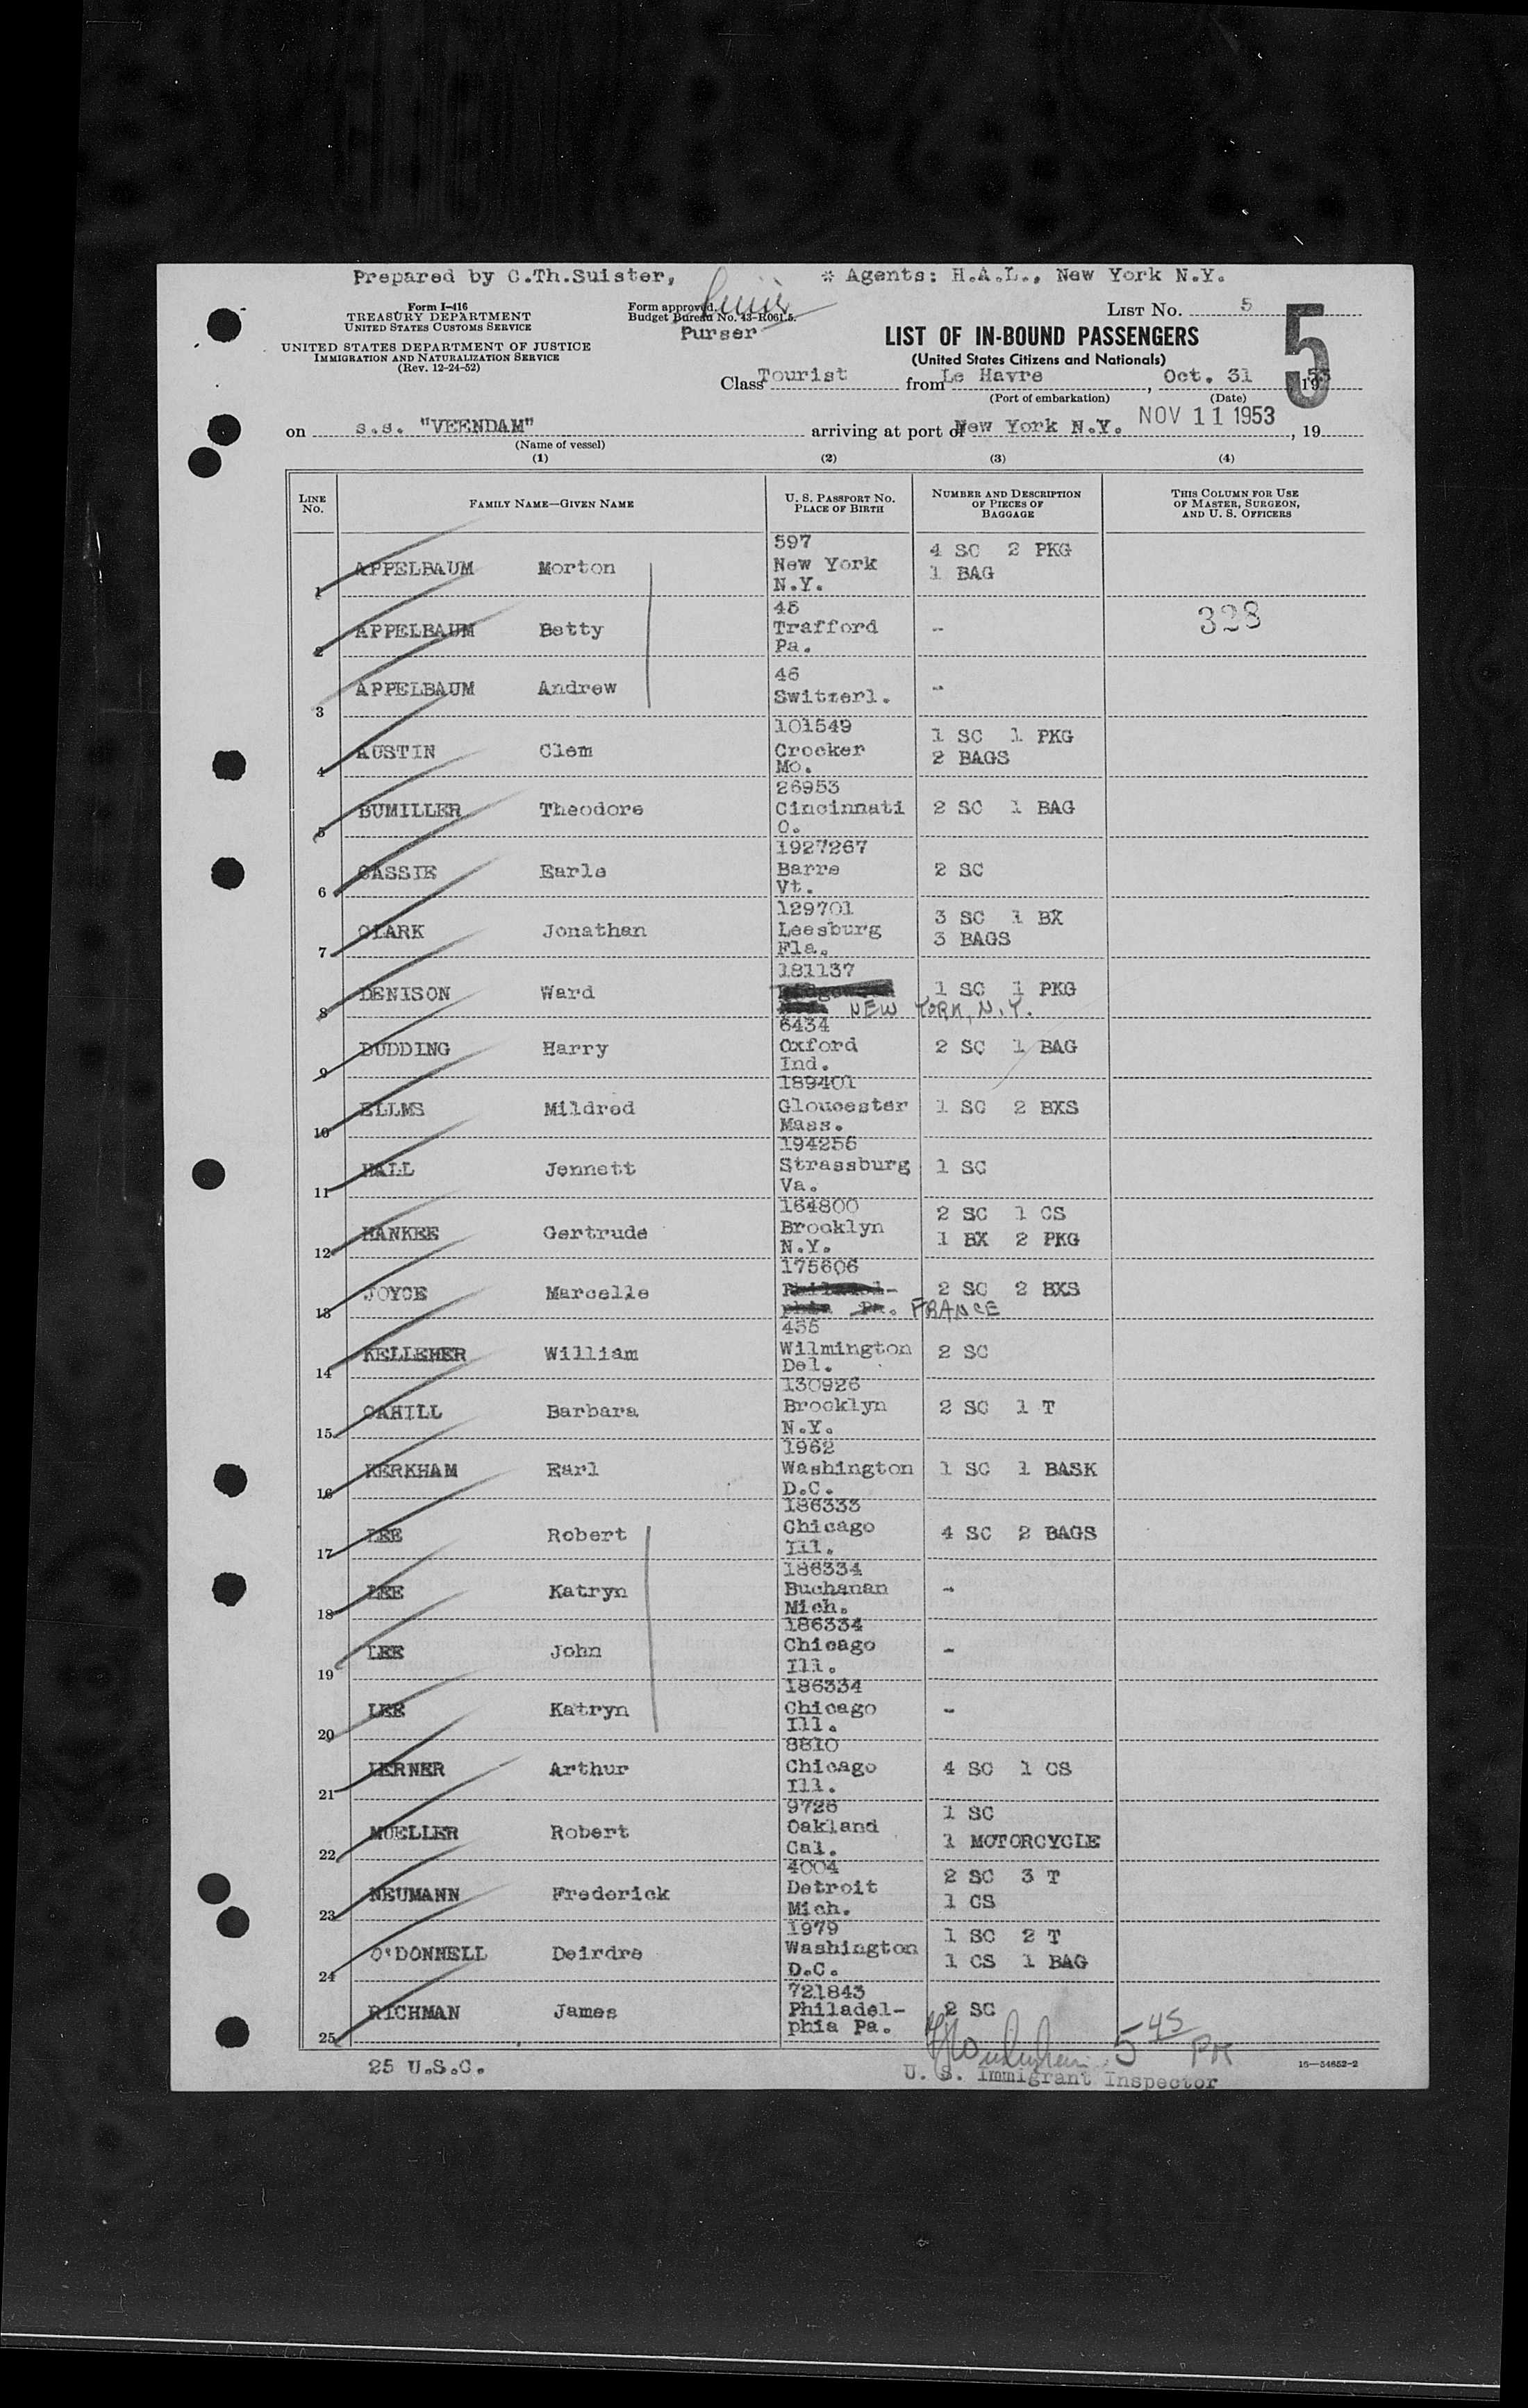 Prepared by C.Th.Suister, * Agents: H.A.L., New York N.Y.
Form I-416
TREASURY DEPARTMENT
UNITED STATES CUSTOMS SERVICE
UNITED STATES DEPARTMENT OF JUSTICE
IMMIGRATION AND NATURALIZATION SERVICE
(Rev. 12-24-52)
Form approved.
Budget Bureau No. 43-R061.5.
Purser
LIST No. 5
5
LIST OF IN-BOUND PASSENGERS
(United States Citizens and Nationals)
Class Tourist from Le Havre, Oct. 31, 1953
(Port of embarkation) (Date)
on s.s. "VEENDAM" arriving at port of New York N.Y. NOV 11 1953, 19
(Name of vessel)
(1) (2) (3) (4)
LINE No. FAMILY NAME—GIVEN NAME U. S. PASSPORT NO. PLACE OF BIRTH NUMBER AND DESCRIPTION OF PIECES OF BAGGAGE THIS COLUMN FOR USE OF MASTER, SURGEON, AND U. S. OFFICERS
1 APPELBAUM Morton 597 New York N.Y. 4 SC 2 PKG 1 BAG
2 APPELBAUM Betty 45 Trafford Pa. - 328
3 APPELBAUM Andrew 46 Switzerl. -
4 AUSTIN Clem 101549 Crocker Mo. 1 SC 1 PKG 2 BAGS
5 BUMILLER Theodore 26953 Cincinnati O. 2 SC 1 BAG
6 CASSIE Earle 1927267 Barre Vt. 2 SC
7 CLARK Jonathan 129701 Leesburg Fla. 3 SC 1 BX 3 BAGS
8 DENISON Ward 181137 NEW YORK, N.Y. 1 SC 1 PKG
9 DUDDING Harry 6434 Oxford Ind. 2 SC 1 BAG
10 ELLMS Mildred 189401 Gloucester Mass. 1 SC 2 BXS
11 HALL Jennett 194256 Strassburg Va. 1 SC
12 HANKEE Gertrude 164800 Brooklyn N.Y. 2 SC 1 CS 1 BX 2 PKG
13 JOYCE Marcelle 175606 Philadel-phia Pa. FRANCE 2 SC 2 BXS
14 KELLEHER William 455 Wilmington Del. 2 SC
15 CAHILL Barbara 130926 Brooklyn N.Y. 2 SC 1 T
16 KERKHAM Earl 1962 Washington D.C. 1 SC 1 BASK
17 LEE Robert 186333 Chicago Ill. 4 SC 2 BAGS
18 LEE Katryn 186334 Buchanan Mich. -
19 LEE John 186334 Chicago Ill. -
20 LEE Katryn 186334 Chicago Ill. -
21 LERNER Arthur 8810 Chicago Ill. 4 SC 1 CS
22 MUELLER Robert 9726 Oakland Cal. 1 SC 1 MOTORCYCLE
23 NEUMANN Frederick 4004 Detroit Mich. 2 SC 3 T 1 CS
24 O'DONNELL Deirdre 1979 Washington D.C. 1 SC 2 T 1 CS 1 BAG
25 RICHMAN James 721843 Philadel-phia Pa. 2 SC
5 45 PM
25 U.S.C.
U. S. Immigrant Inspector
16—54652-2